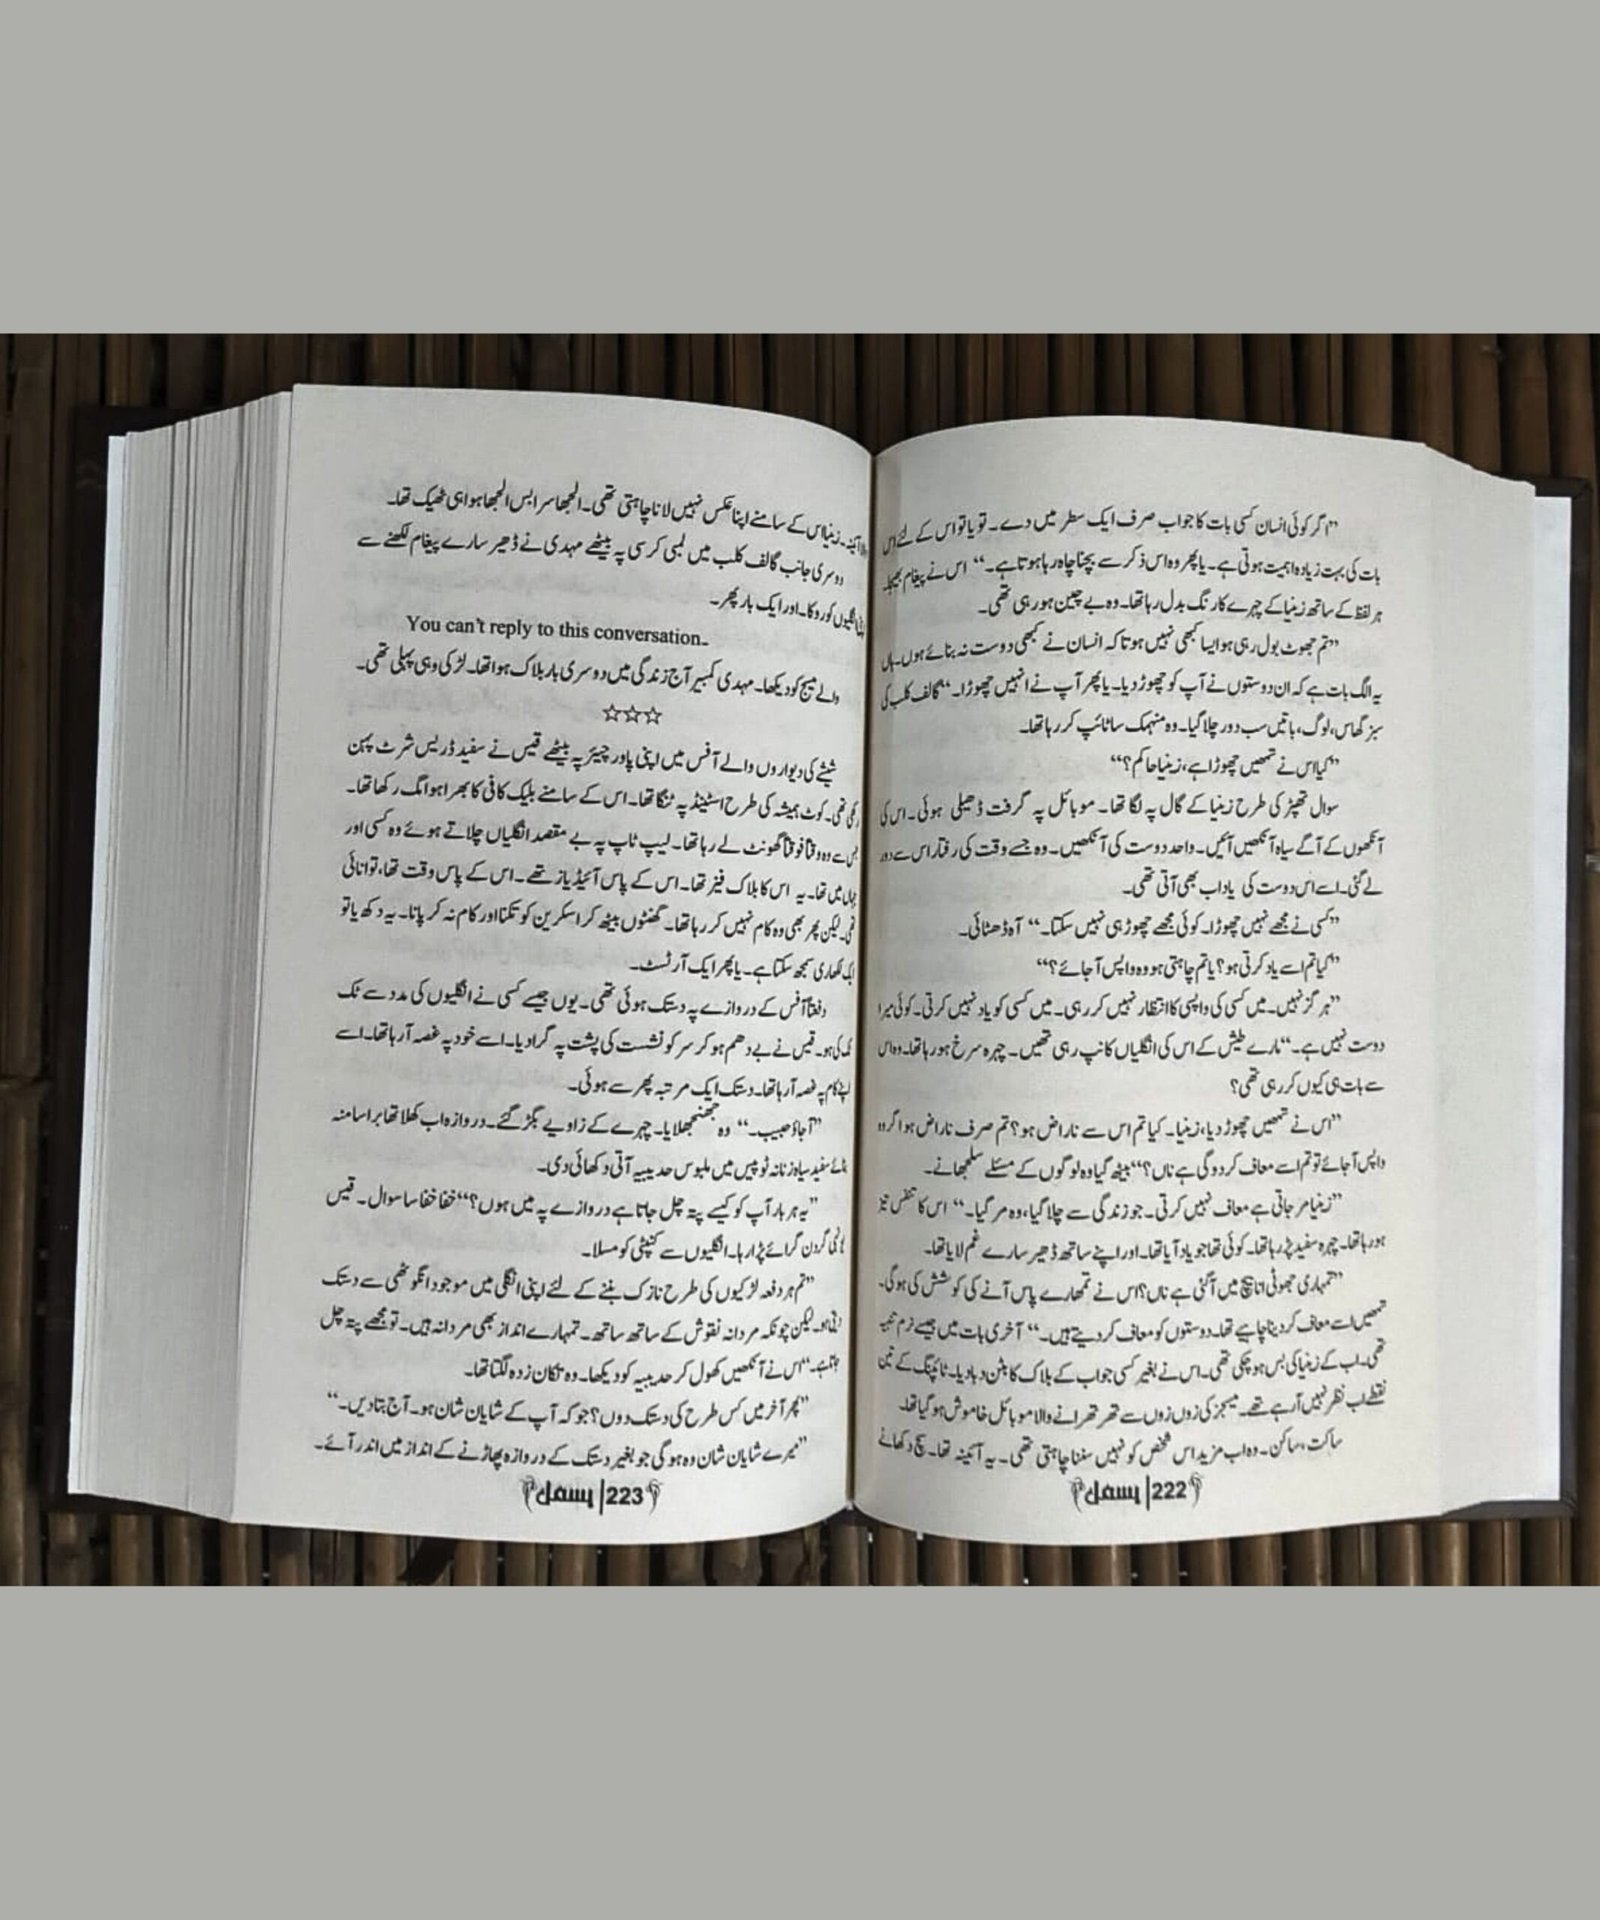 "اگر کوئی انسان کسی بات کا جواب صرف ایک سطر میں دے۔ تو یا تو اس کے لئے اس
بات کی بہت زیادہ اہمیت ہوتی ہے۔ یا پھر وہ اس ذکر سے بچنا چاہ رہا ہوتا ہے۔" اس نے پیغام بھیجا۔
ہر لفظ کے ساتھ زینیا کے چہرے کا رنگ بدل رہا تھا۔ وہ بے چین ہو رہی تھی۔
"تم جھوٹ بول رہی ہو ایسا کبھی نہیں ہوتا کہ انسان نے کبھی دوست نہ بنائے ہوں۔ ہاں
یہ الگ بات ہے کہ ان دوستوں نے آپ کو چھوڑ دیا۔ یا پھر آپ نے انہیں چھوڑا۔" گالف کلب کی
سبز گھاس، لوگ، باتیں سب دور چلا گیا۔ وہ منہمک سا ٹائپ کر رہا تھا۔
"کیا اس نے تمھیں چھوڑا ہے، زینیا حاکم؟"
سوال تھپڑ کی طرح زینیا کے گال پہ لگا تھا۔ موبائل پہ گرفت ڈھیلی ہوئی۔ اس کی
آنکھوں کے آگے سیاہ آنکھیں آئیں۔ واحد دوست کی آنکھیں۔ وہ جسے وقت کی رفتار اس سے دور
لے گئی۔ اسے اس دوست کی یاد اب بھی آتی تھی۔
"کسی نے مجھے نہیں چھوڑا۔ کوئی مجھے چھوڑ ہی نہیں سکتا۔" آہ ڈھٹائی۔
"کیا تم اسے یاد کرتی ہو؟ یا تم چاہتی ہو وہ واپس آ جائے؟"
"ہر گز نہیں۔ میں کسی کی واپسی کا انتظار نہیں کر رہی۔ میں کسی کو یاد نہیں کرتی۔ کوئی میرا
دوست نہیں ہے۔" مارے طیش کے اس کی انگلیاں کانپ رہی تھیں۔ چہرہ سرخ ہو رہا تھا۔ وہ اس
سے بات ہی کیوں کر رہی تھی؟
"اس نے تمھیں چھوڑ دیا، زینیا۔ کیا تم اس سے ناراض ہو؟ تم صرف ناراض ہو اگر وہ
واپس آ جائے تو تم اسے معاف کر دو گی ہے ناں؟" بیٹھ گیا وہ لوگوں کے مسئلے سلجھانے۔
"زینیا مر جاتی ہے معاف نہیں کرتی۔ جو زندگی سے چلا گیا، وہ مر گیا۔" اس کا تنفس تیز
ہو رہا تھا۔ چہرہ سفید پڑ رہا تھا۔ کوئی تھا جو یاد آیا تھا۔ اور اپنے ساتھ ڈھیر سارے غم لایا تھا۔
"تمہاری جھوٹی انا بیچ میں آ گئی ہے ناں؟ اس نے تمھارے پاس آنے کی کوشش کی ہو گی۔
تمھیں اسے معاف کر دینا چاہیے تھا۔ دوستوں کو معاف کر دیتے ہیں۔" آخری بات میں جیسے نرم تنبیہ
تھی۔ اب کے زینیا کی بس ہو چکی تھی۔ اس نے بغیر کسی جواب کے بلاک کا بٹن دبا دیا۔ ٹائپنگ کے تین
نقطے اب نظر نہیں آ رہے تھے۔ میسجز کی زوں زوں سے تھر تھرانے والا موبائل خاموش ہو گیا تھا۔
ساکت، ساکن۔ وہ اب مزید اس شخص کو نہیں سننا چاہتی تھی۔ یہ آئینہ تھا۔ سچ دکھانے
بسمل|222
والا آئینہ۔ زینیا اس کے سامنے اپنا عکس نہیں لانا چاہتی تھی۔ الجھا سرا بس الجھا ہوا ہی ٹھیک تھا۔
دوسری جانب گالف کلب میں لمبی کرسی پہ بیٹھے مہدی نے ڈھیر سارے پیغام لکھنے سے
اپنی انگلیوں کو روکا۔ اور ایک بار پھر۔
You can't reply to this conversation۔
والے میسج کو دیکھا۔ مہدی کمبیر آج زندگی میں دوسری بار بلاک ہوا تھا۔ لڑکی وہی پہلی تھی۔
☆☆☆
شیشے کی دیواروں والے آفس میں اپنی پاور چیئر پہ بیٹھے قیس نے سفید ڈریس شرٹ پہن
رکھی تھی۔ کوٹ ہمیشہ کی طرح اسٹینڈ پہ ٹنگا تھا۔ اس کے سامنے بلیک کافی کا بھرا ہوا مگ رکھا تھا۔
جس سے وہ وقتاً فوقتاً گھونٹ لے رہا تھا۔ لیپ ٹاپ پہ بے مقصد انگلیاں چلاتے ہوئے وہ کسی اور
جہاں میں تھا۔ یہ اس کا بلاک فیز تھا۔ اس کے پاس آئیڈیاز تھے۔ اس کے پاس وقت تھا، توانائی
تھی۔ لیکن پھر بھی وہ کام نہیں کر رہا تھا۔ گھنٹوں بیٹھ کر اسکرین کو تکنا اور کام نہ کر پانا۔ یہ دکھ یا تو
ایک لکھاری سمجھ سکتا ہے۔ یا پھر ایک آرٹسٹ۔
دفعتاً آفس کے دروازے پہ دستک ہوئی تھی۔ یوں جیسے کسی نے انگلیوں کی مدد سے ٹک
ٹک کی ہو۔ قیس نے بے دھم ہو کر سر کو نشست کی پشت پہ گرا دیا۔ اسے خود پہ غصہ آ رہا تھا۔ اسے
اپنے کام پہ غصہ آ رہا تھا۔ دستک ایک مرتبہ پھر سے ہوئی۔
"آ جاؤ حبیب۔" وہ جھنجھلایا۔ چہرے کے زاویے بگڑ گئے۔ دروازہ اب کھلا تھا برا سا منہ
بنائے سفید سیاہ زنانہ ٹو پیس میں ملبوس حدیبیہ آتی دکھائی دی۔
"یہ ہر بار آپ کو کیسے پتہ چل جاتا ہے دروازے پہ میں ہوں؟" خفا خفا سا سوال۔ قیس
یونہی گردن گرائے پڑا رہا۔ انگلیوں سے کنپٹی کو مسلا۔
"تم ہر دفعہ لڑکیوں کی طرح نازک بننے کے لئے اپنی انگلی میں موجود انگوٹھی سے دستک
دیتی ہو۔ لیکن چونکہ مردانہ نقوش کے ساتھ ساتھ۔ تمہارے انداز بھی مردانہ ہیں۔ تو مجھے پتہ چل
جاتا ہے۔" اس نے آنکھیں کھول کر حدیبیہ کو دیکھا۔ وہ تکان زدہ لگتا تھا۔
"پھر آخر میں کس طرح کی دستک دوں؟ جو کہ آپ کے شایان شان ہو۔ آج بتا دیں۔"
"میرے شایان شان وہ ہو گی جو بغیر دستک کے دروازہ پھاڑنے کے انداز میں اندر آئے۔
بسمل|223